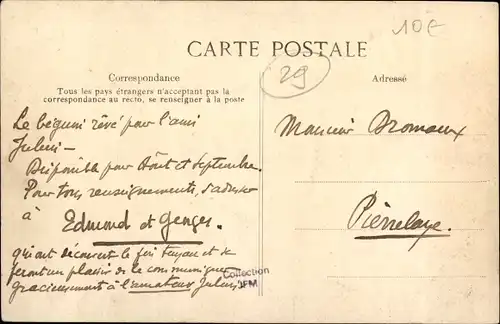 10€
CARTE POSTALE
29
Correspondance
Tous les pays étrangers n'acceptant pas la
correspondance au recto, se renseigner à la poste
Adressé
Le béguin rêvé pour l'ami
Julien —
Disponible pour Août et Septembre.
Pour tous renseignements, s'adresser
à
Edmond et Georges.
qui ont découvert le fin tuyau et se
feront un plaisir de le communiquer
gracieusement à l'amateur Julien
Monsieur
Pierrelaye.
Collection
JFM